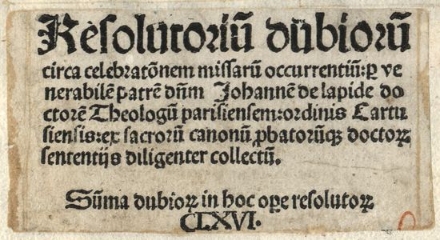 Resolutoriū dubiorū
circa celebratōnem missarū occurrentiū: ꝑ ve
nerabilē patrē dn̄m Johannē de lapide do
ctorē Theologū parisiensem: ordinis Cartu
siensis: ex sacrorū canonū ꝓbatorūqꝫ doctorꝝ
sententijs diligenter collectū.
Sūma dubiorꝝ in hoc oꝑe resolutorꝝ
CLXVI.